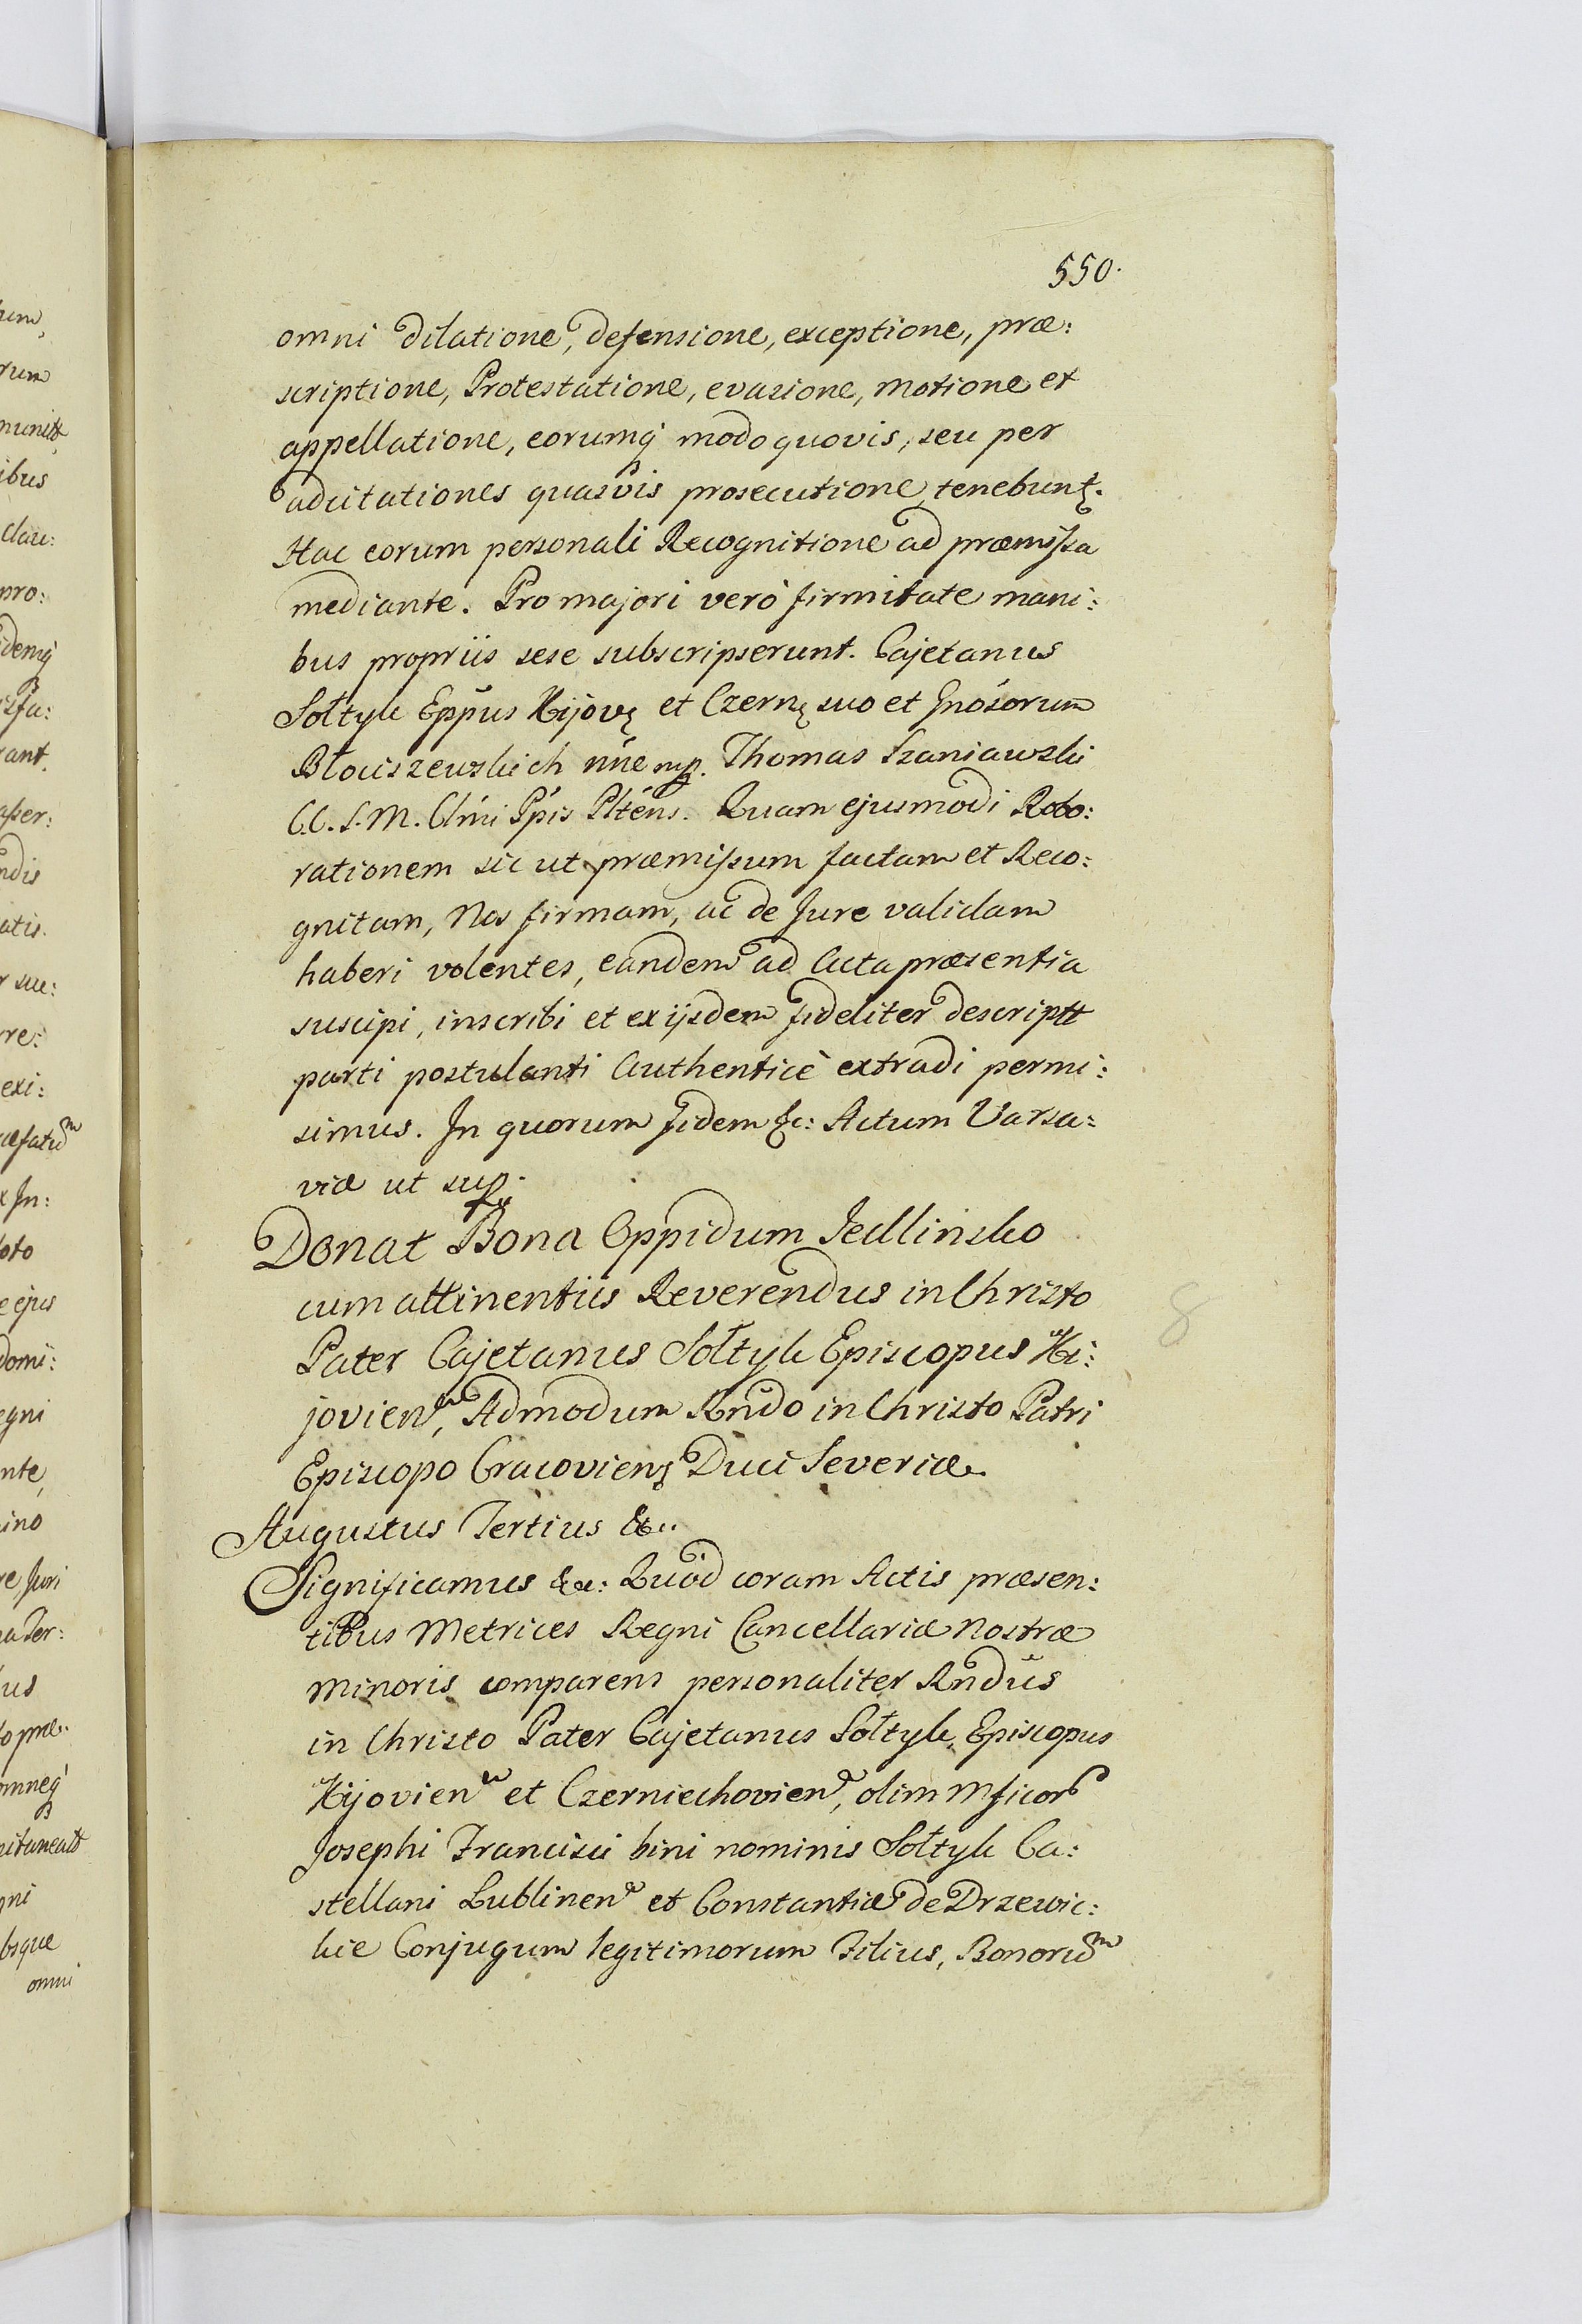 550.
omni dilatione, defensione, exceptione, præ:
scriptione, Protestatione, evasione, motione et
appellatione, eorumq́ modo quovis, seu per
adcitationes quasvis prosecutione tenebunt.
Hac eorum personali Recognitione ad præmissa
mediante. Pro majori verò firmitate mani:
bus propriis sese subscripserunt. Cajetanus
Sołtyk Eppūs Kijov et Czern suo et Gnōsorum
Błociszewskich nn̄e mp. Thomas Szaniawski
C.C.S.M. Clmi Ppis Pltēns. Quam ejusmodi Robo:
rationem sic ut præmissum factam et Reco:
gnitam, Nos firmam, ac de Jure validam
haberi volentes, eandem ad Acta præsentia
suscipi, inscribi et ex ijsdem fideliter descriptt
parti postulanti Authenticè extradi permi:
simus. In quorum fidem &c: Actum Varsa:
viæ ut sup.
Donat Bona Oppidum Jedlinsko
cum attinentiis Reverendus in Christo
Pater Cajetanus Sołtyk Episcopus Ki:
jovien, Admodum Rndo in Christo Patri
Episcopo Cracovien Duci Severiæ
Augustus Tertius &c.
Significamus &c: Quod coram Actis præsen:
tibus Metrices Regni Cancellariæ Nostræ
Minoris comparens personaliter Rndūs
in Christo Pater Cajetanus Sołtyk Episcopus
Kijovien et Czerniechovien, olim Mficor
Josephi Francisci bini nominis Sołtyk Ca:
stellani Lublinen et Constantiæ de Drzewic:
kie Conjugum legitimorum Filius, Bonorum
8
rum
ibus
Clau:
pro:
ant.
ndis
re:
exi:
x In:
e ejus
domi:
egni
nte,
ino
re Juri
us
bsque
omni